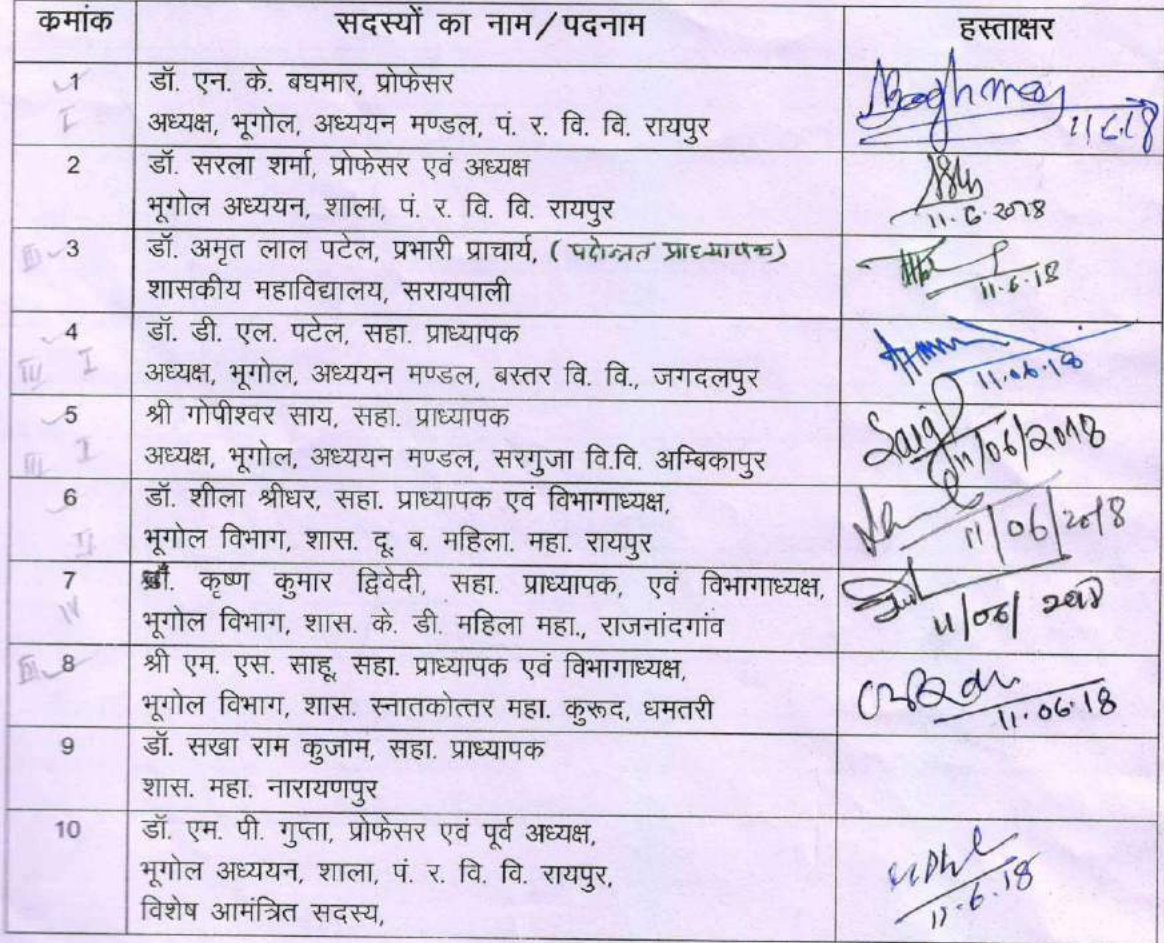 क्रमांक सदस्यों का नाम/पदनाम हस्ताक्षर
1 डॉ. एन. के. बघमार, प्रोफेसर
I अध्यक्ष, भूगोल, अध्ययन मण्डल, पं. र. वि. वि. रायपुर 11.6.18
2 डॉ. सरला शर्मा, प्रोफेसर एवं अध्यक्ष
भूगोल अध्ययन, शाला, पं. र. वि. वि. रायपुर 11.6.2018
III 3 डॉ. अमृत लाल पटेल, प्रभारी प्राचार्य, (पदोन्नत प्राध्यापक)
शासकीय महाविद्यालय, सरायपाली 11.6.18
4 डॉ. डी. एल. पटेल, सहा. प्राध्यापक
IV I अध्यक्ष, भूगोल, अध्ययन मण्डल, बस्तर वि. वि., जगदलपुर 11.06.18
5 श्री गोपीश्वर साय, सहा. प्राध्यापक
III I अध्यक्ष, भूगोल, अध्ययन मण्डल, सरगुजा वि.वि. अम्बिकापुर 11/06/2018
6 डॉ. शीला श्रीधर, सहा. प्राध्यापक एवं विभागाध्यक्ष,
II भूगोल विभाग, शास. दू. ब. महिला. महा. रायपुर 11/06/2018
7 डॉ. कृष्ण कुमार द्विवेदी, सहा. प्राध्यापक, एवं विभागाध्यक्ष,
IV भूगोल विभाग, शास. के. डी. महिला महा., राजनांदगांव 11/06/2018
III 8 श्री एम. एस. साहू, सहा. प्राध्यापक एवं विभागाध्यक्ष,
भूगोल विभाग, शास. स्नातकोत्तर महा. कुरूद, धमतरी 11.06.18
9 डॉ. सखा राम कुजाम, सहा. प्राध्यापक
शास. महा. नारायणपुर
10 डॉ. एम. पी. गुप्ता, प्रोफेसर एवं पूर्व अध्यक्ष,
भूगोल अध्ययन, शाला, पं. र. वि. वि. रायपुर,
विशेष आमंत्रित सदस्य, 11.6.18